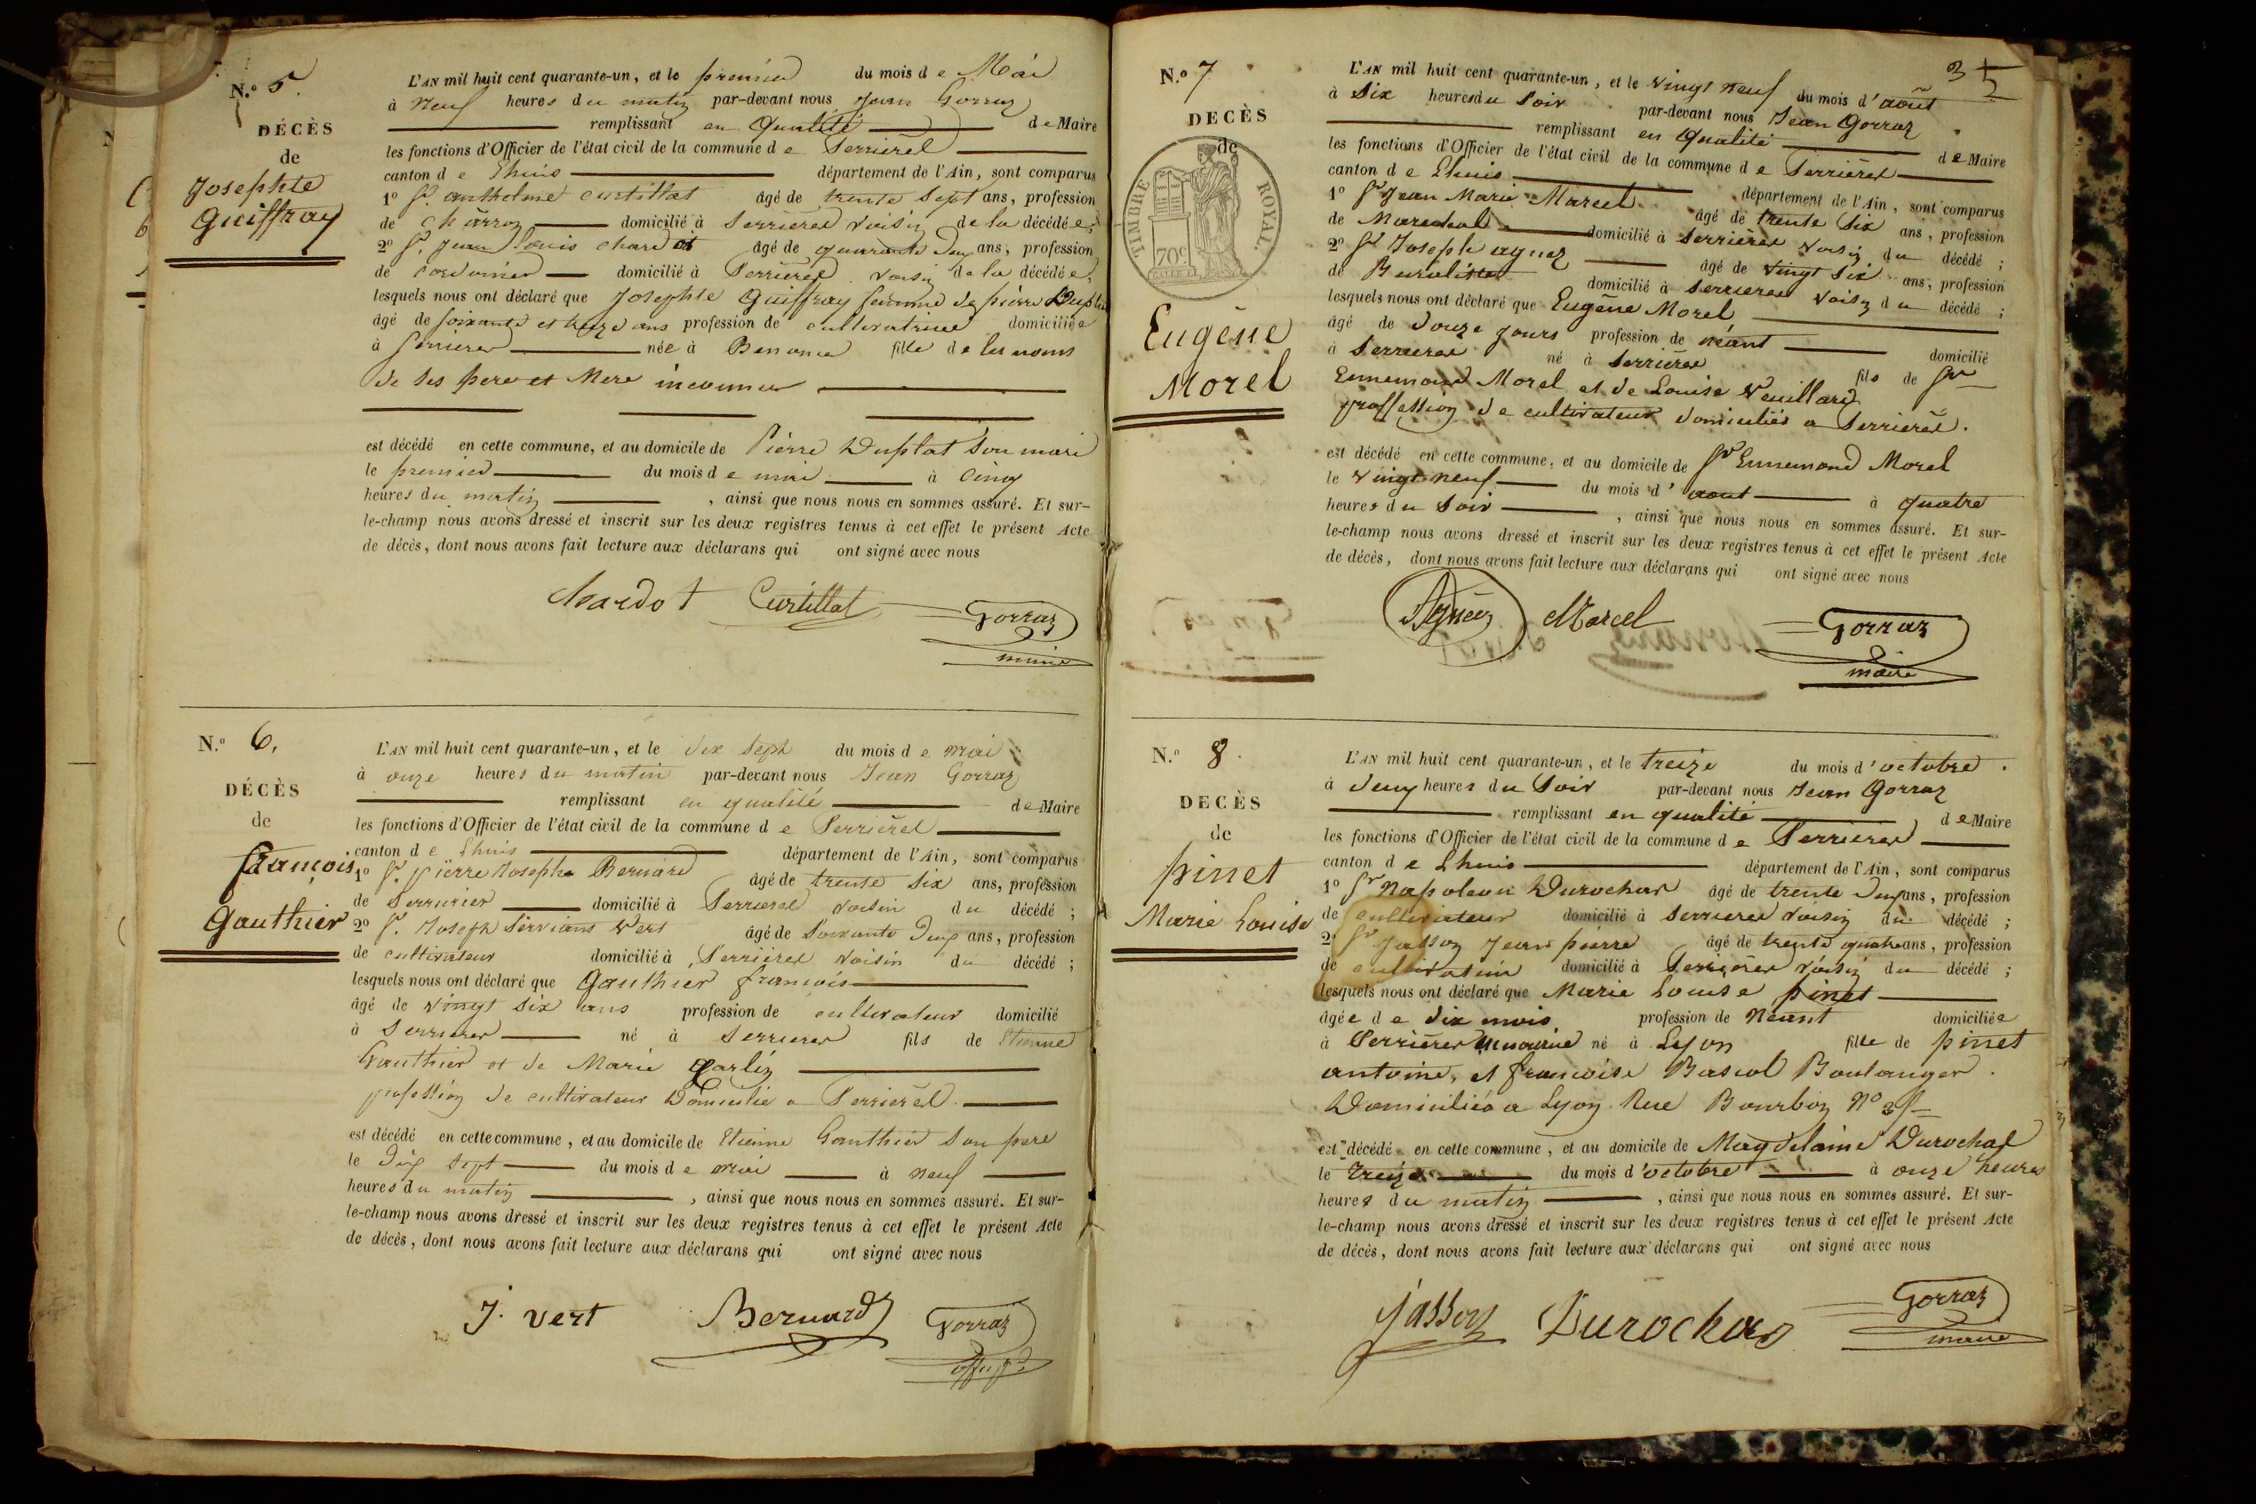 N.º 5.
DÉCÈS
de
Josephte
Guiffray
L'AN mil huit cent quarante-un, et le premier du mois de Mai
à neuf heures du matin par-devant nous Jean Gorraz
remplissant en qualité de Maire
les fonctions d'Officier de l'état civil de la commune de Serrières
canton de Lhuis département de l'Ain, sont comparus
1º Sr. anthelme Curtillat âgé de trente sept ans, profession
de charron domicilié à Serrieres voisin de la décédée;
2º Sr. Jean Louis chardot âgé de quarante deux ans, profession
de cordonier domicilié à Serrieres voisin de la décédée;
lesquels nous ont déclaré que Josephte Guiffray femme de pierre Duplat
âgé de soixante et treize ans profession de cultivatrice domiciliée
à serrieres née à Benonce fille de les noms
de ses pere et Mere inconnus
est décédé en cette commune, et au domicile de Pierre Duplat son mari
le premier du mois de mai à cinq
heures du matin, ainsi que nous nous en sommes assuré. Et sur-
le-champ nous avons dressé et inscrit sur les deux registres tenus à cet effet le présent Acte
de décès, dont nous avons fait lecture aux déclarans qui ont signé avec nous
Chardot Curtillat Gorraz
maire
N.º 6.
DÉCÈS
de
françois
Gauthier
L'AN mil huit cent quarante-un, et le dix sept du mois de mai
à onze heures du matin par-devant nous Jean Gorraz
remplissant en qualité de Maire
les fonctions d'Officier de l'état civil de la commune de Serrières
canton de Lhuis département de l'Ain, sont comparus
1º Sr. pierre Joseph Bernard âgé de trente six ans, profession
de Serrurier domicilié à Serrieres voisin du décédé;
2º Sr. Joseph Servians Vert âgé de Soixante deux ans, profession
de cultivateur domicilié à Serrieres voisin du décédé;
lesquels nous ont déclaré que Gauthier françois
âgé de vingt six ans profession de cultivateur domicilié
à Serrieres né à Serrieres fils de Etienne
Gauthier et de Marie Garlin
profession de cultivateur Domicilié a Serrieres.
est décédé en cette commune, et au domicile de Etienne Gauthier son pere
le dix sept du mois de mai à neuf
heures du matin, ainsi que nous nous en sommes assuré. Et sur-
le-champ nous avons dressé et inscrit sur les deux registres tenus à cet effet le présent Acte
de décès, dont nous avons fait lecture aux déclarans qui ont signé avec nous
J. Vert Bernard Gorraz
N.º 7
DECÈS
de
TIMBRE ROYAL.
70c
Eugène
Morel
3
L'AN mil huit cent quarante-un, et le vingt neuf du mois d'août
à Six heures du Soir par-devant nous Jean Gorraz
remplissant en qualité de Maire
les fonctions d'Officier de l'état civil de la commune de Serrières
canton de Lhuis département de l'Ain, sont comparus
1º Sr Jean Marie Marcel âgé de trente Six ans, profession
de Marechal domicilié à Serrières voisin du décédé;
2º Sr Joseph agnez âgé de vingt six ans, profession
de Buraliste domicilié à Serrieres voisin du décédé;
lesquels nous ont déclaré que Eugène Morel
âgé de douze jours profession de néant domicilié
à Serrieres né à Serrières fils de Sr
Ennemond Morel et de Louise Veuillard
proffession de cultivateur domiciliés a Serrières.
est décédé en cette commune, et au domicile de Sr Ennemond Morel
le vingt neuf du mois d'aout à quatre
heures du Soir, ainsi que nous nous en sommes assuré. Et sur-
le-champ nous avons dressé et inscrit sur les deux registres tenus à cet effet le présent Acte
de décès, dont nous avons fait lecture aux déclarans qui ont signé avec nous
Agnèz Marcel Gorraz
maire
N.º 8.
DECÈS
de
pinet
Marie Louise
L'AN mil huit cent quarante-un, et le treize du mois d'octobre.
à deux heures du Soir par-devant nous Jean Gorraz
remplissant en qualité de Maire
les fonctions d'Officier de l'état civil de la commune de Serrieres
canton de Lhuis département de l'Ain, sont comparus
1º Sr Napoleon Durochar âgé de trente deux ans, profession
de cultivateur domicilié à Serrieres voisin du décédé;
2º Sr Jasson Jean pierre âgé de trente quatre ans, profession
de cultivateur domicilié à Serrières voisin du décédé;
lesquels nous ont déclaré que Marie Louise pinet
âgée de dix mois profession de Néant domiciliée
à Serrières né à Lyon fille de pinet
antoine, et françoise Bascol Boulanger.
Domiciliés a Lyon Rue Bourbon Nº
est décédé en cette commune, et au domicile de Magdelaine Durochat
le treize du mois d'octobre à onze heures
heures du matin, ainsi que nous nous en sommes assuré. Et sur-
le-champ nous avons dressé et inscrit sur les deux registres tenus à cet effet le présent Acte
de décès, dont nous avons fait lecture aux déclarans qui ont signé avec nous
Jasson Durochas Gorraz
maire